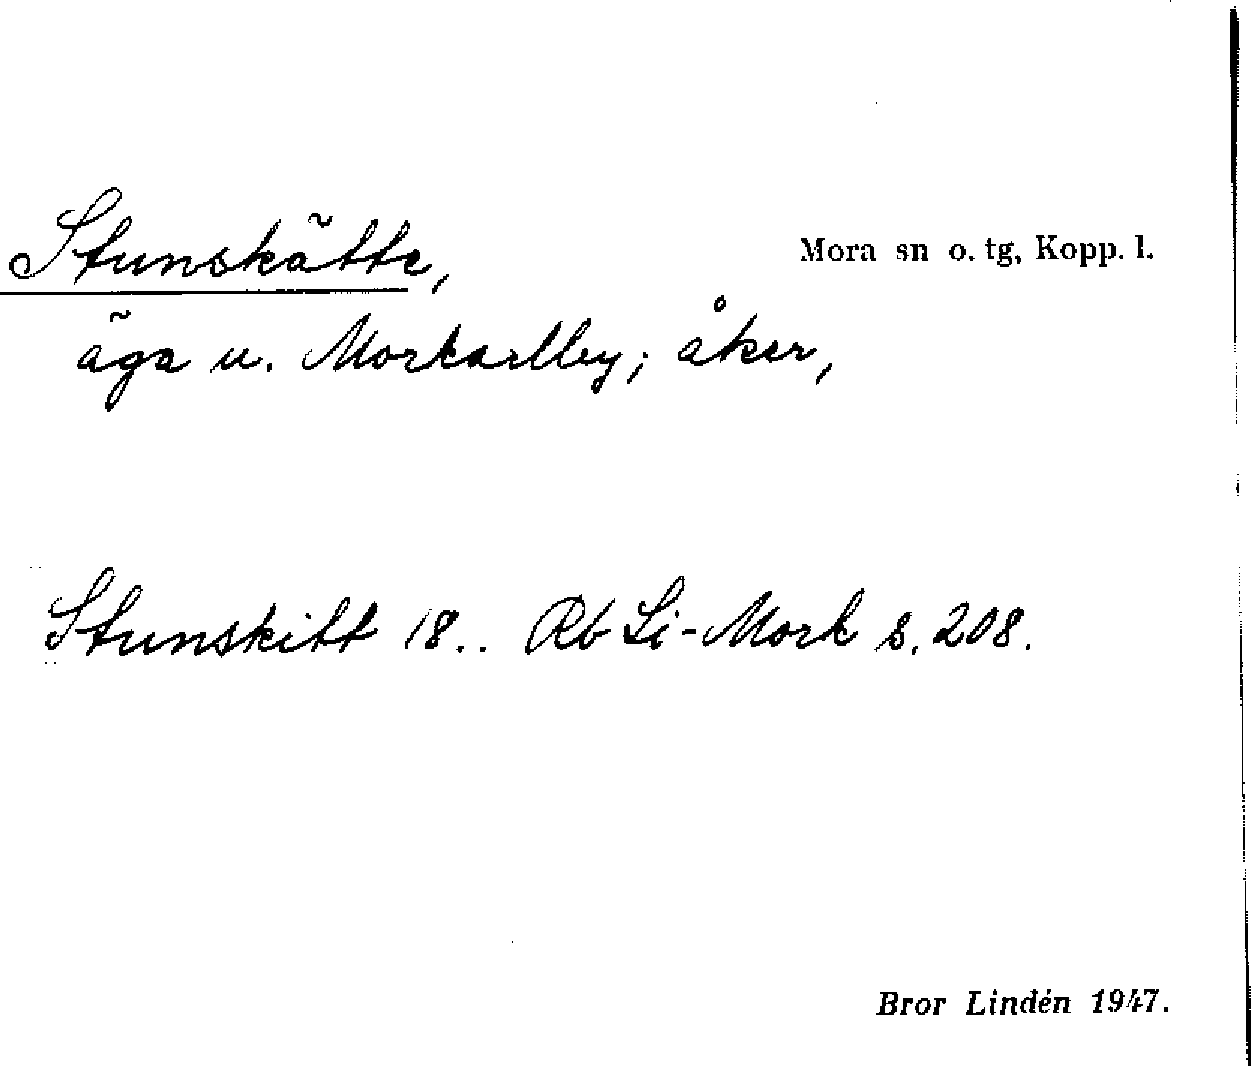 Stunskätte,
Mora sn o. tg, Kopp. l.
äga u. Morkarlby; åker,
Stunskitt 18.. Rb Li-Mork s. 208.
Bror Lindén 1947.